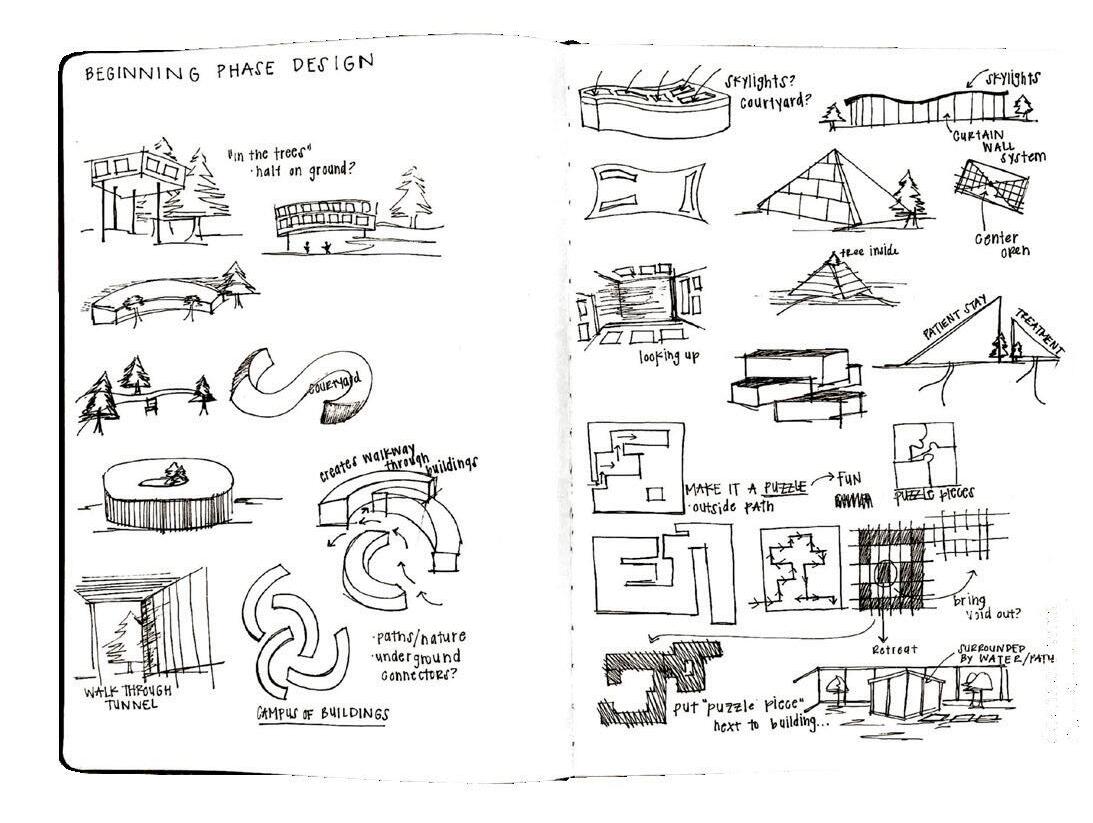 BEGINNING PHASE DESIGN
"in the trees"
· half on ground?
courtyard
creates walkway
through
buildings
· paths/nature
· underground
connectors?
WALK THROUGH
TUNNEL
CAMPUS OF BUILDINGS
skylights?
courtyard?
skylights
CURTAIN
WALL
system
center
open
tree inside
looking up
PATIENT STAY
TREATMENT
MAKE IT A PUZZLE
· outside path
FUN
PUZZLE PIECES
bring
void out?
Retreat
SURROUNDED
BY WATER/PATH
put "puzzle piece"
next to building...